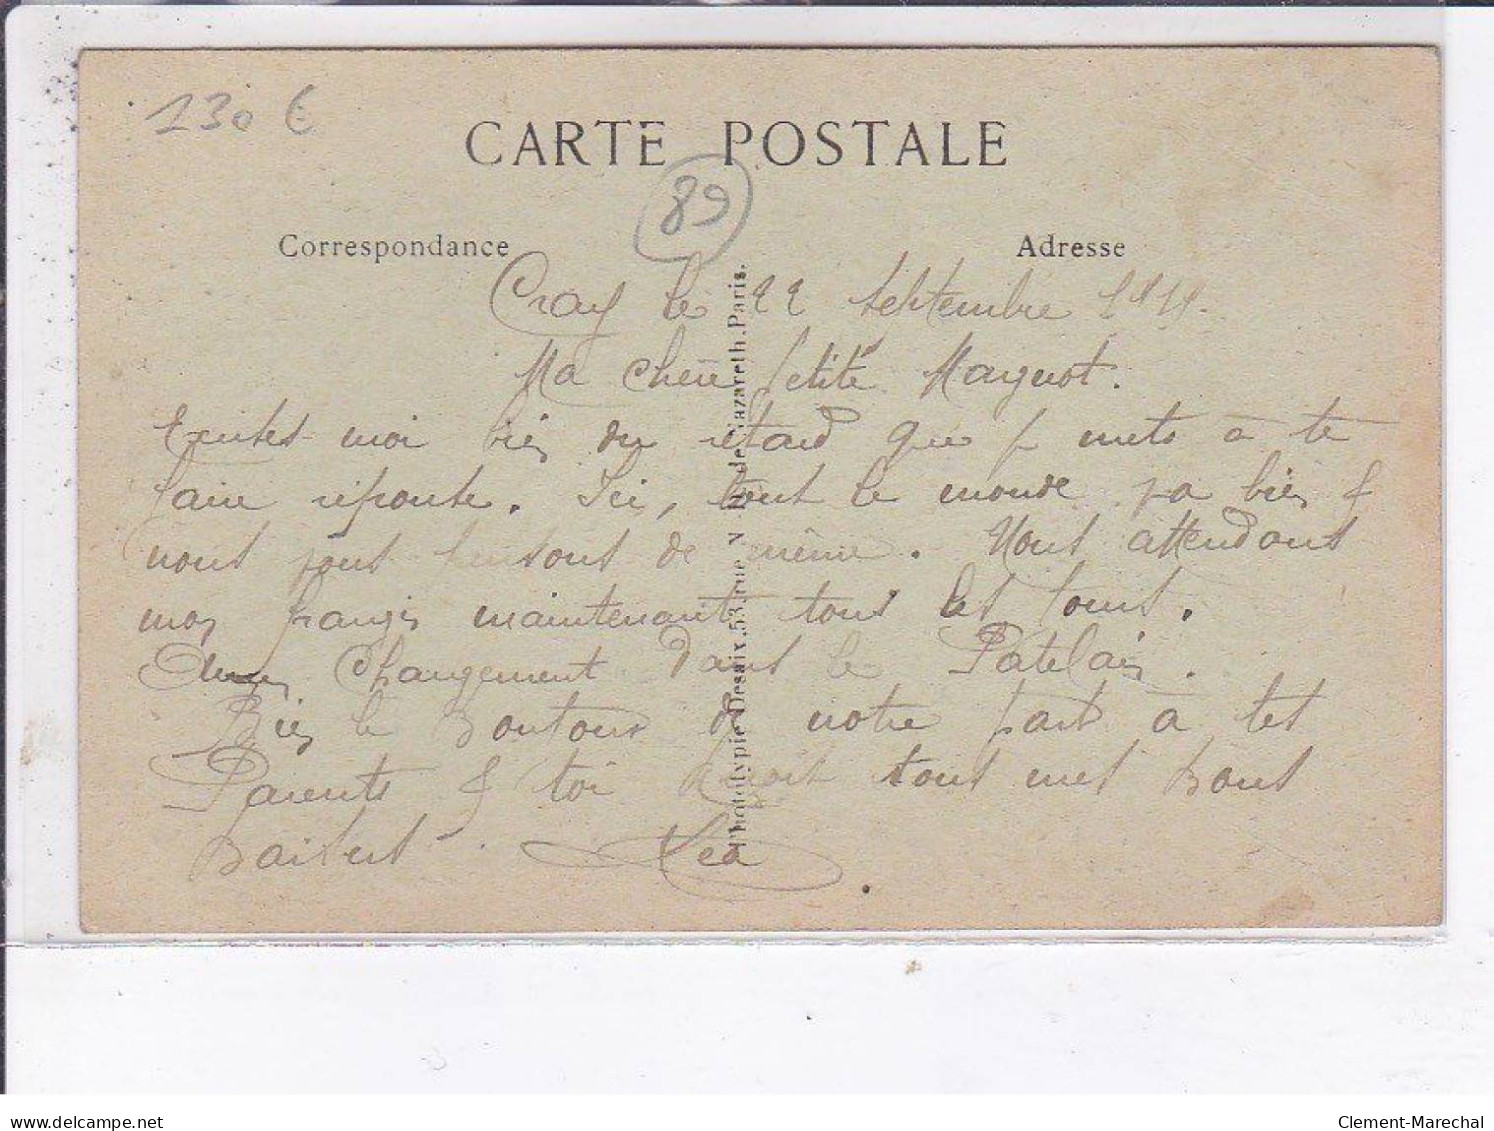 130 €
CARTE POSTALE
89
Correspondance
Adresse
Cray le 22 septembre
Ma chère petite Marguot.
moi bien du retard que je mets à te
faire réponse. Ici, tout le monde va bien &
nous vous pensons de même. Nous attendons
mon frangin maintenant tous les jours.
changement dans le Patelain.
Bien le Bonjour de notre part à tes
Parents & toi reçois tous mes bons
Baisers. Léa
Phototypie Desaix, 53, rue N. D. de Nazareth. Paris.
www.delcampe.net
Clement-Marechal